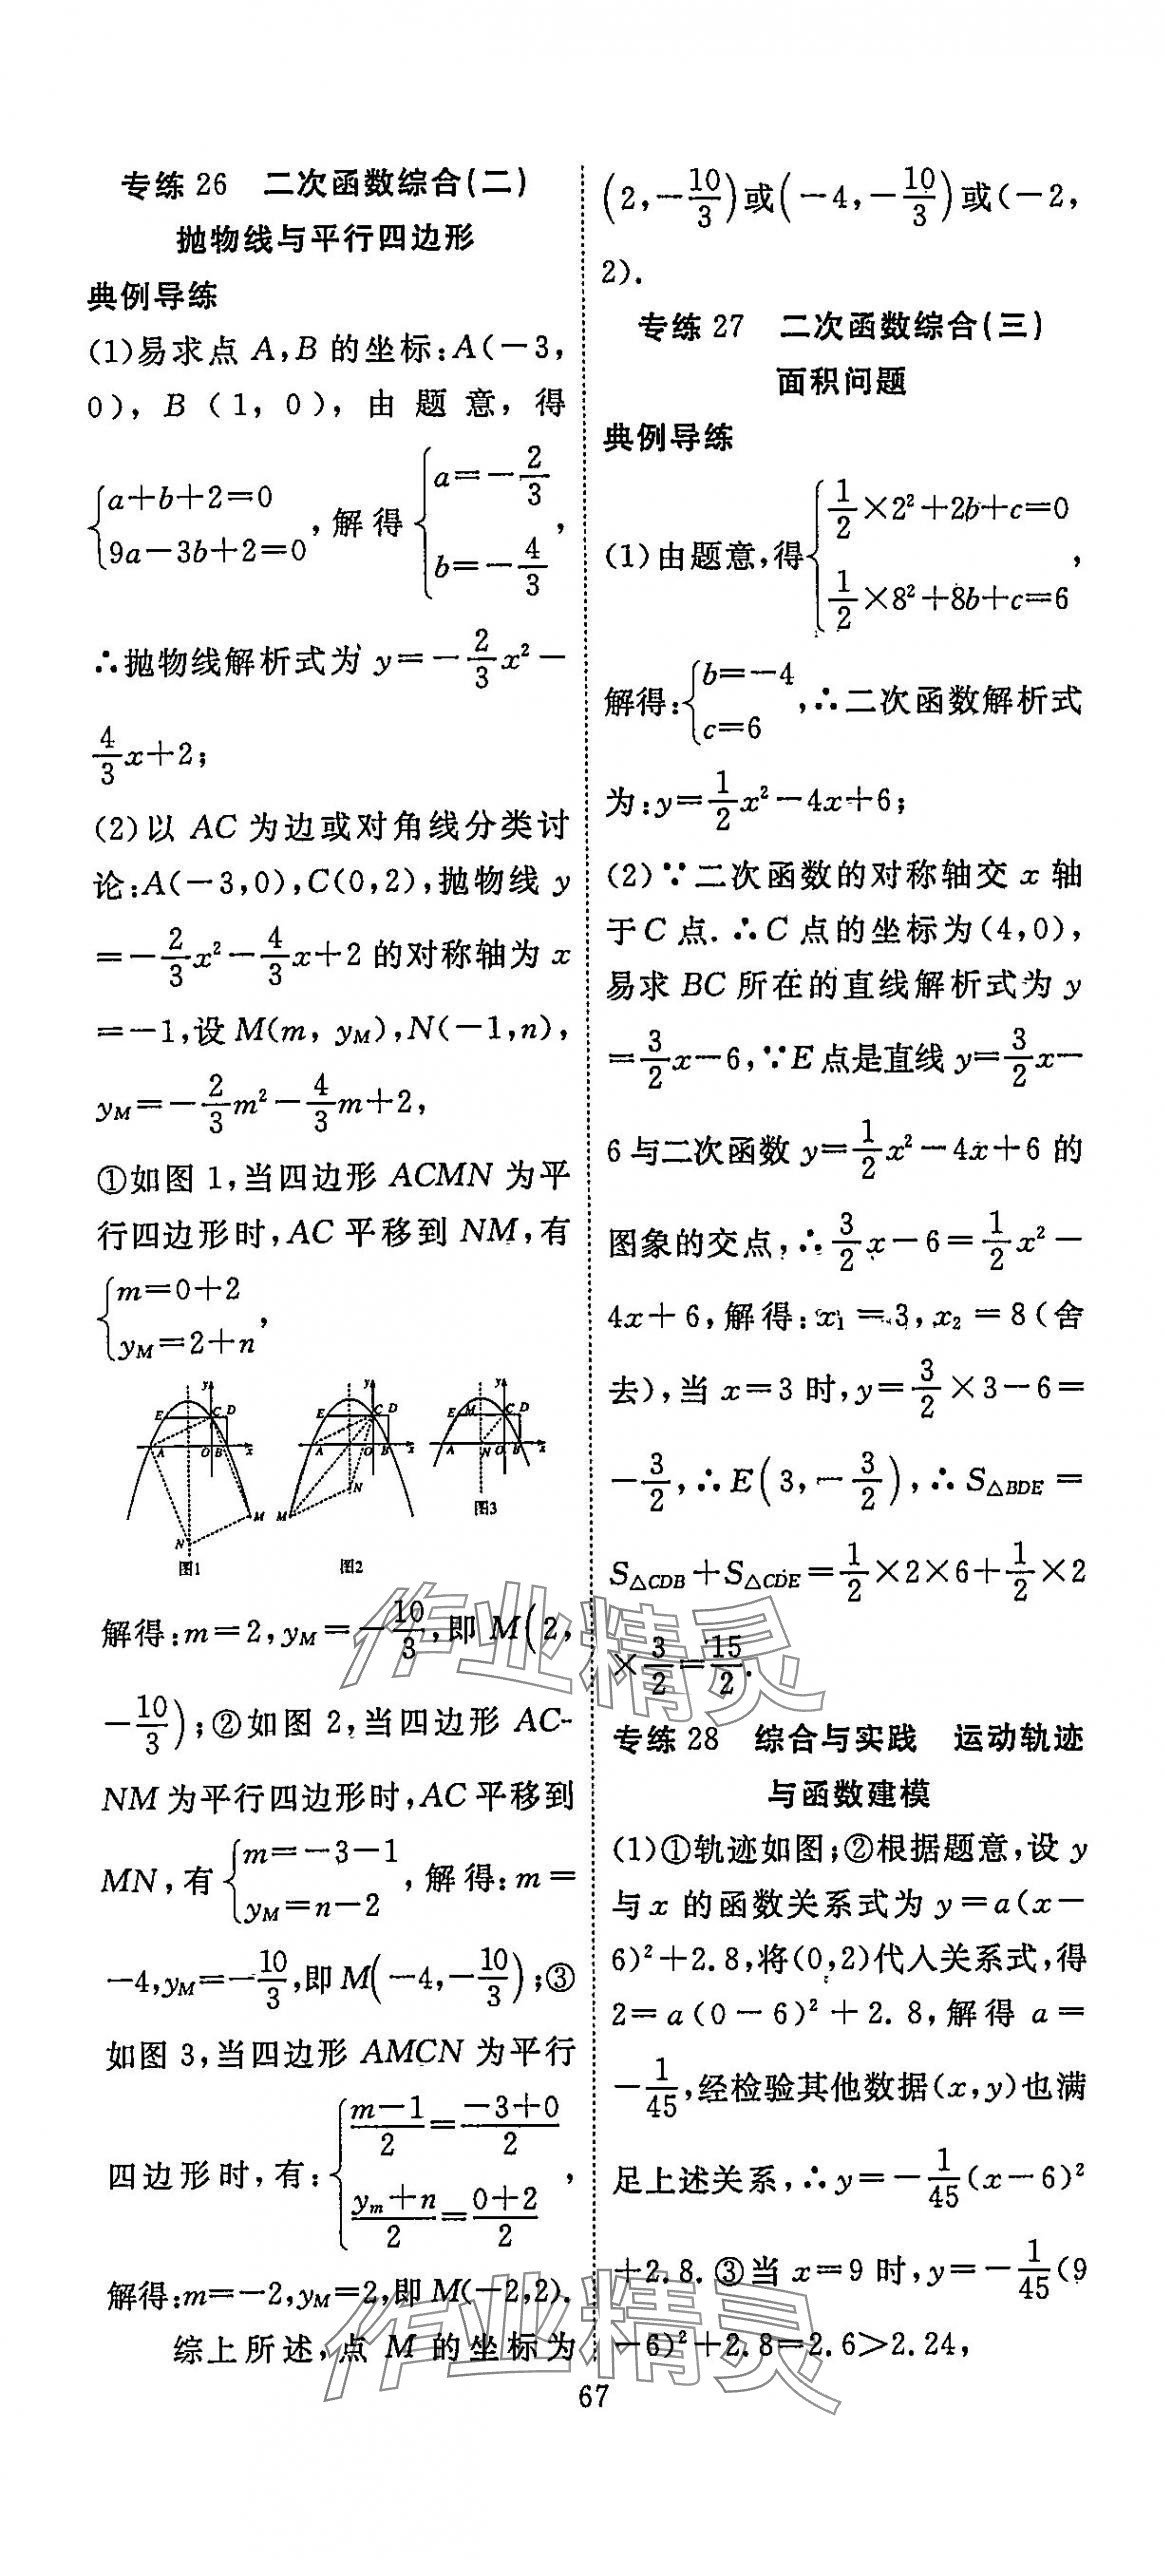 专练 26　二次函数综合(二)
抛物线与平行四边形
典例导练
(1)易求点 A,B 的坐标:A(－3,
0), B (1, 0), 由 题 意, 得
{a＋b＋2＝0
9a－3b＋2＝0, 解得 {a＝－2/3
b＝－4/3,
∴抛物线解析式为 y＝－2/3x²－
4/3x＋2;
(2)以 AC 为边或对角线分类讨
论:A(－3,0),C(0,2),抛物线 y
＝－2/3x²－4/3x＋2 的对称轴为 x
＝－1,设 M(m, y_M),N(－1,n),
y_M＝－2/3m²－4/3m＋2,
①如图 1,当四边形 ACMN 为平
行四边形时,AC 平移到 NM,有
{m＝0＋2
y_M＝2＋n,
y E C D A O B x M N 图1
y E C D A O B x N M 图2
y E M C D A N O B x 图3
解得:m＝2,y_M＝－10/3,即 M(2,
－10/3);②如图 2,当四边形 AC-
NM 为平行四边形时,AC 平移到
MN,有 {m＝－3－1
y_M＝n－2, 解得:m＝
－4,y_M＝－10/3,即 M(－4,－10/3);③
如图 3,当四边形 AMCN 为平行
四边形时,有: {(m－1)/2＝(－3＋0)/2
(y_m＋n)/2＝(0＋2)/2,
解得:m＝－2,y_M＝2,即 M(－2,2).
综上所述,点 M 的坐标为
(2,－10/3)或(－4,－10/3)或(－2,
2).
专练 27　二次函数综合(三)
面积问题
典例导练
(1)由题意,得 {1/2×2²＋2b＋c＝0
1/2×8²＋8b＋c＝6,
解得: {b＝－4
c＝6, ∴二次函数解析式
为:y＝1/2x²－4x＋6;
(2)∵二次函数的对称轴交 x 轴
于 C 点. ∴C 点的坐标为(4,0),
易求 BC 所在的直线解析式为 y
＝3/2x－6,∵E 点是直线 y＝3/2x－
6 与二次函数 y＝1/2x²－4x＋6 的
图象的交点,∴3/2x－6＝1/2x²－
4x＋6,解得:x₁＝3,x₂＝8(舍
去),当 x＝3 时,y＝3/2×3－6＝
－3/2,∴E(3,－3/2),∴S△BDE＝
S△CDB＋S△CDE＝1/2×2×6＋1/2×2
×3/2＝15/2.
专练 28　综合与实践　运动轨迹
与函数建模
(1)①轨迹如图;②根据题意,设 y
与 x 的函数关系式为 y＝a(x－
6)²＋2.8,将(0,2)代入关系式,得
2＝a(0－6)²＋2.8,解得 a＝
－1/45,经检验其他数据(x,y)也满
足上述关系,∴y＝－1/45(x－6)²
＋2.8.③当 x＝9 时,y＝－1/45(9
－6)²＋2.8＝2.6＞2.24,
67
作业精灵
作业精灵